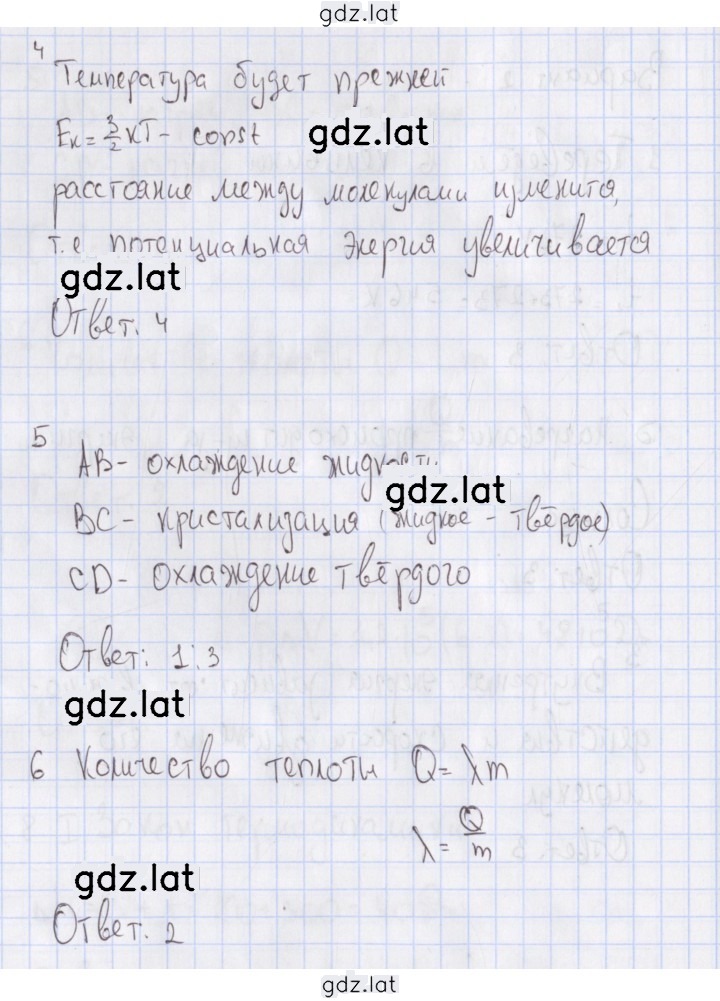 gdz.lat
4
Температура будет прежней
Eк = 3/2 кT - const gdz.lat
расстояние между молекулами изменится,
т.е потенциальная энергия увеличивается
gdz.lat
Ответ: 4
5
AB - охлаждение
gdz.lat
BC - кристализация (жидкое - твёрдое)
CD - охлаждение твёрдого
Ответ: 1; 3
gdz.lat
6 Количество теплоты Q = λm
λ = Q/m
gdz.lat
Ответ. 2
gdz.lat